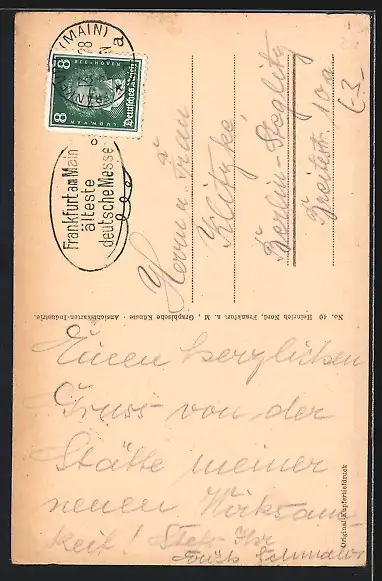 FRANKFURT (MAIN)
28
a
8 8
LUDW. VAN
Deutsches Reich
Frankfurt am Main
älteste
deutsche Messe
Herrn u. Frau
Klitzke,
Berlin-Steglitz
Breitestr. 10a
No. 40 Heinrich Nord, Frankfurt a. M., Graphische Künste - Ansichtkarten-Industrie.
Einen herzlichen
Gruss von der
Stätte meiner
neuen Wirksam-
keit! Stets Ihr
Original-Kupfertiefdruck